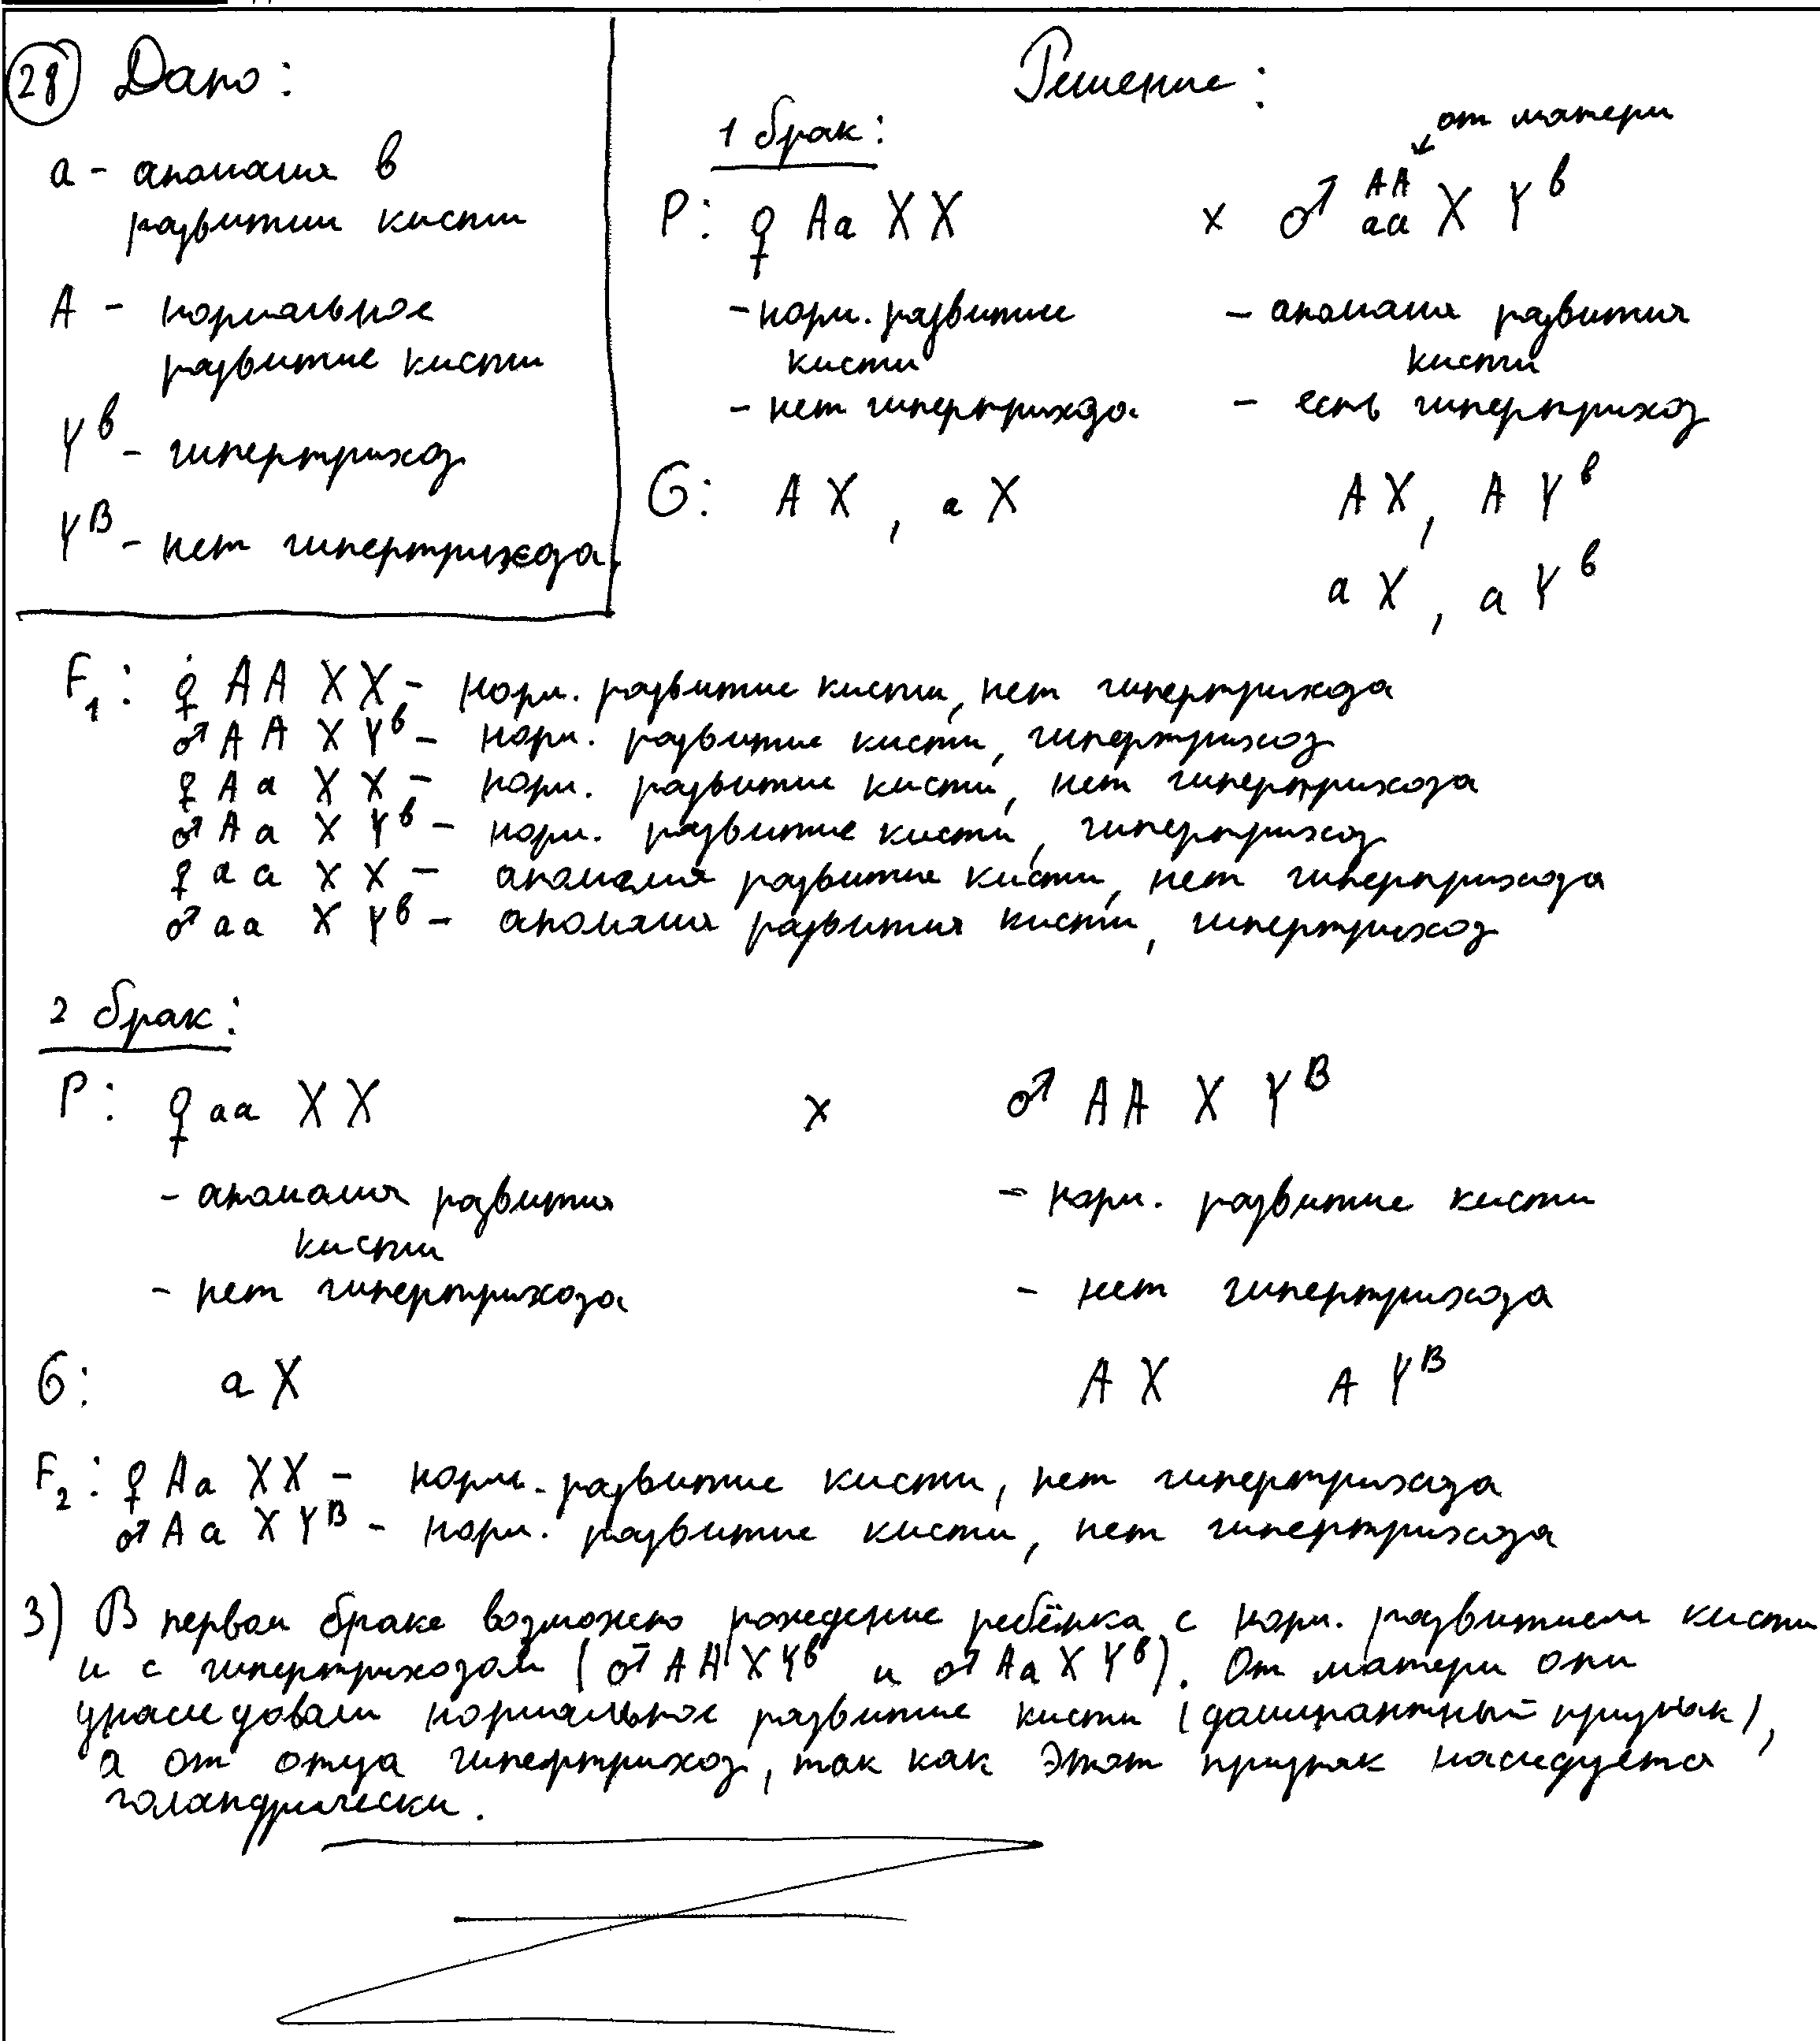 28 Дано:
а - аномалия в
развитии кисти
А - нормальное
развитие кисти
Y^b - гипертрихоз
Y^B - нет гипертрихоза
Решение:
1 брак:
от матери
P: ♀ Aa XX x ♂ AA aa X Y^b
- норм. развитие кисти
- нет гипертрихоза
- аномалия развития кисти
- есть гипертрихоз
G: A X, a X
A X, A Y^b
a X, a Y^b
F1: ♀ AA XX - норм. развитие кисти, нет гипертрихоза
♂ AA X Y^b - норм. развитие кисти, гипертрихоз
♀ Aa X X - норм. развитие кисти, нет гипертрихоза
♂ Aa X Y^b - норм. развитие кисти, гипертрихоз
♀ aa X X - аномалия развития кисти, нет гипертрихоза
♂ aa X Y^b - аномалия развития кисти, гипертрихоз
2 брак:
P: ♀ aa XX x ♂ AA X Y^B
- аномалия развития кисти
- нет гипертрихоза
- норм. развитие кисти
- нет гипертрихоза
G: a X A X A Y^B
F2: ♀ Aa XX - норм. развитие кисти, нет гипертрихоза
♂ Aa X Y^B - норм. развитие кисти, нет гипертрихоза
3) В первом браке возможно рождение ребёнка с норм. развитием кисти
и с гипертрихозом (♂ AA X Y^b и ♂ Aa X Y^b). От матери они
унаследовали нормальное развитие кисти (доминантный признак),
а от отца гипертрихоз, так как этот признак наследуется
голандрически.